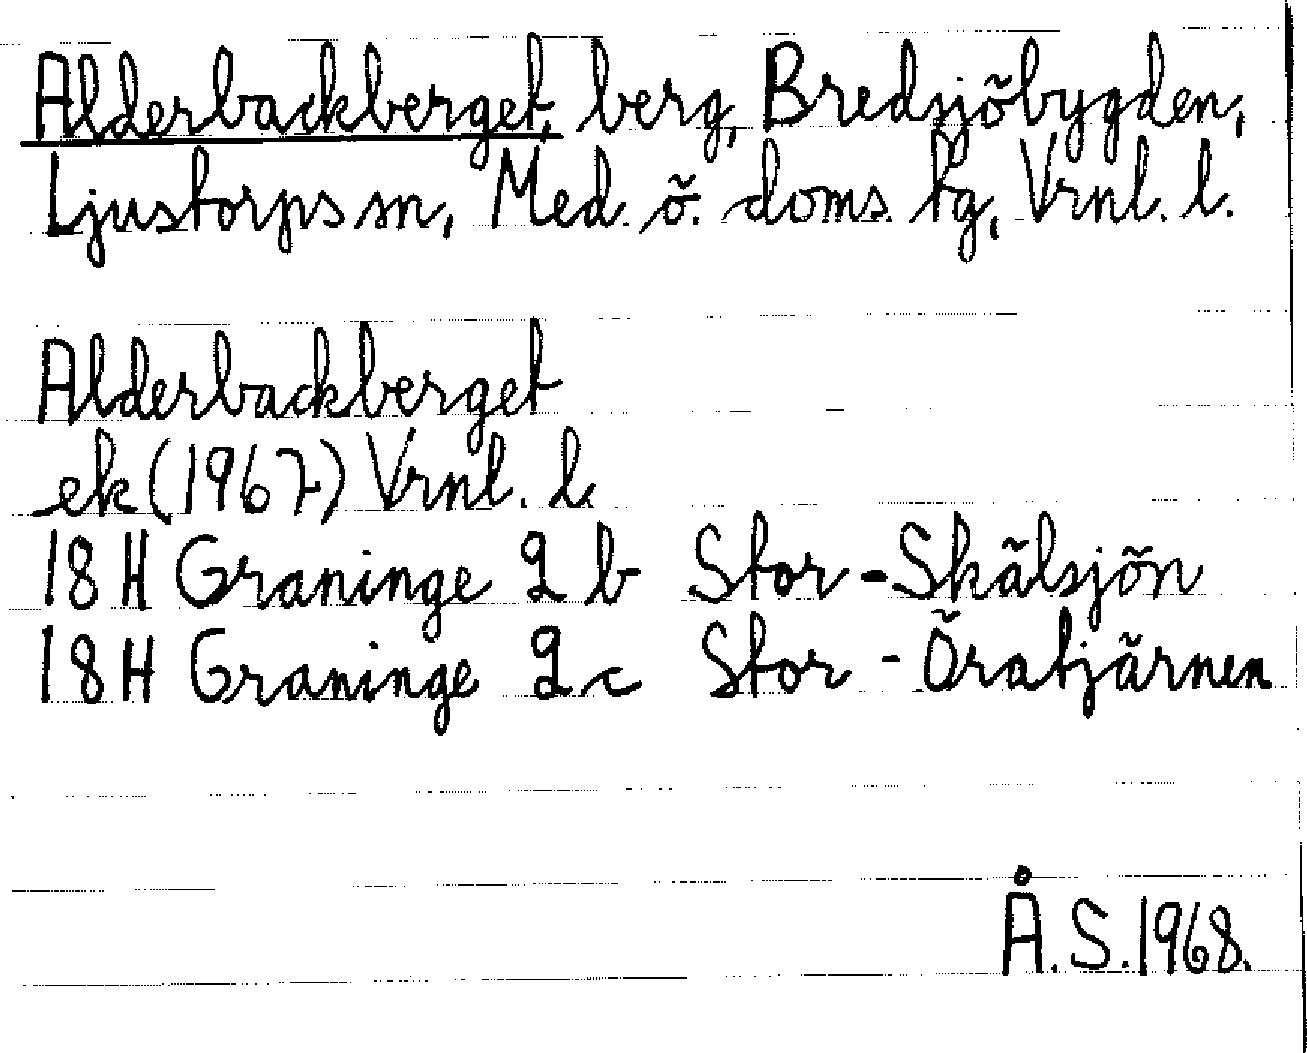 Alderbackberget, berg, Bredsjöbygden,
Ljustorps sn, Med. ö. doms. tg, Vrnl. l.
Alderbackberget
ek (1967) Vrnl. l.
18 H Graninge 2 b Stor-Skälsjön
18 H Graninge 2 c Stor-Öratjärnen
Å. S. 1968.